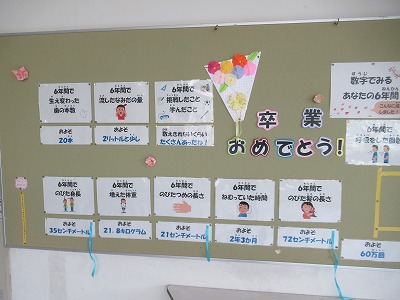 6年間で
生え変わった
歯の本数
およそ
20本
6年間で
流したなみだの量
およそ
2リットルと少し
6年間で
挑戦したこと
学んだこと
数えきれないくらい
たくさんあったね!
卒業
おめでとう!
数字でみる
あなたの6年間
6年間で
呼吸をした回数
およそ
60万回
6年間で
のびた身長
およそ
35センチメートル
6年間で
増えた体重
およそ
21.8キログラム
6年間で
のびたつめの長さ
およそ
21センチメートル
6年間で
ねむっていた時間
およそ
2年3か月
6年間で
のびた髪の長さ
およそ
72センチメートル